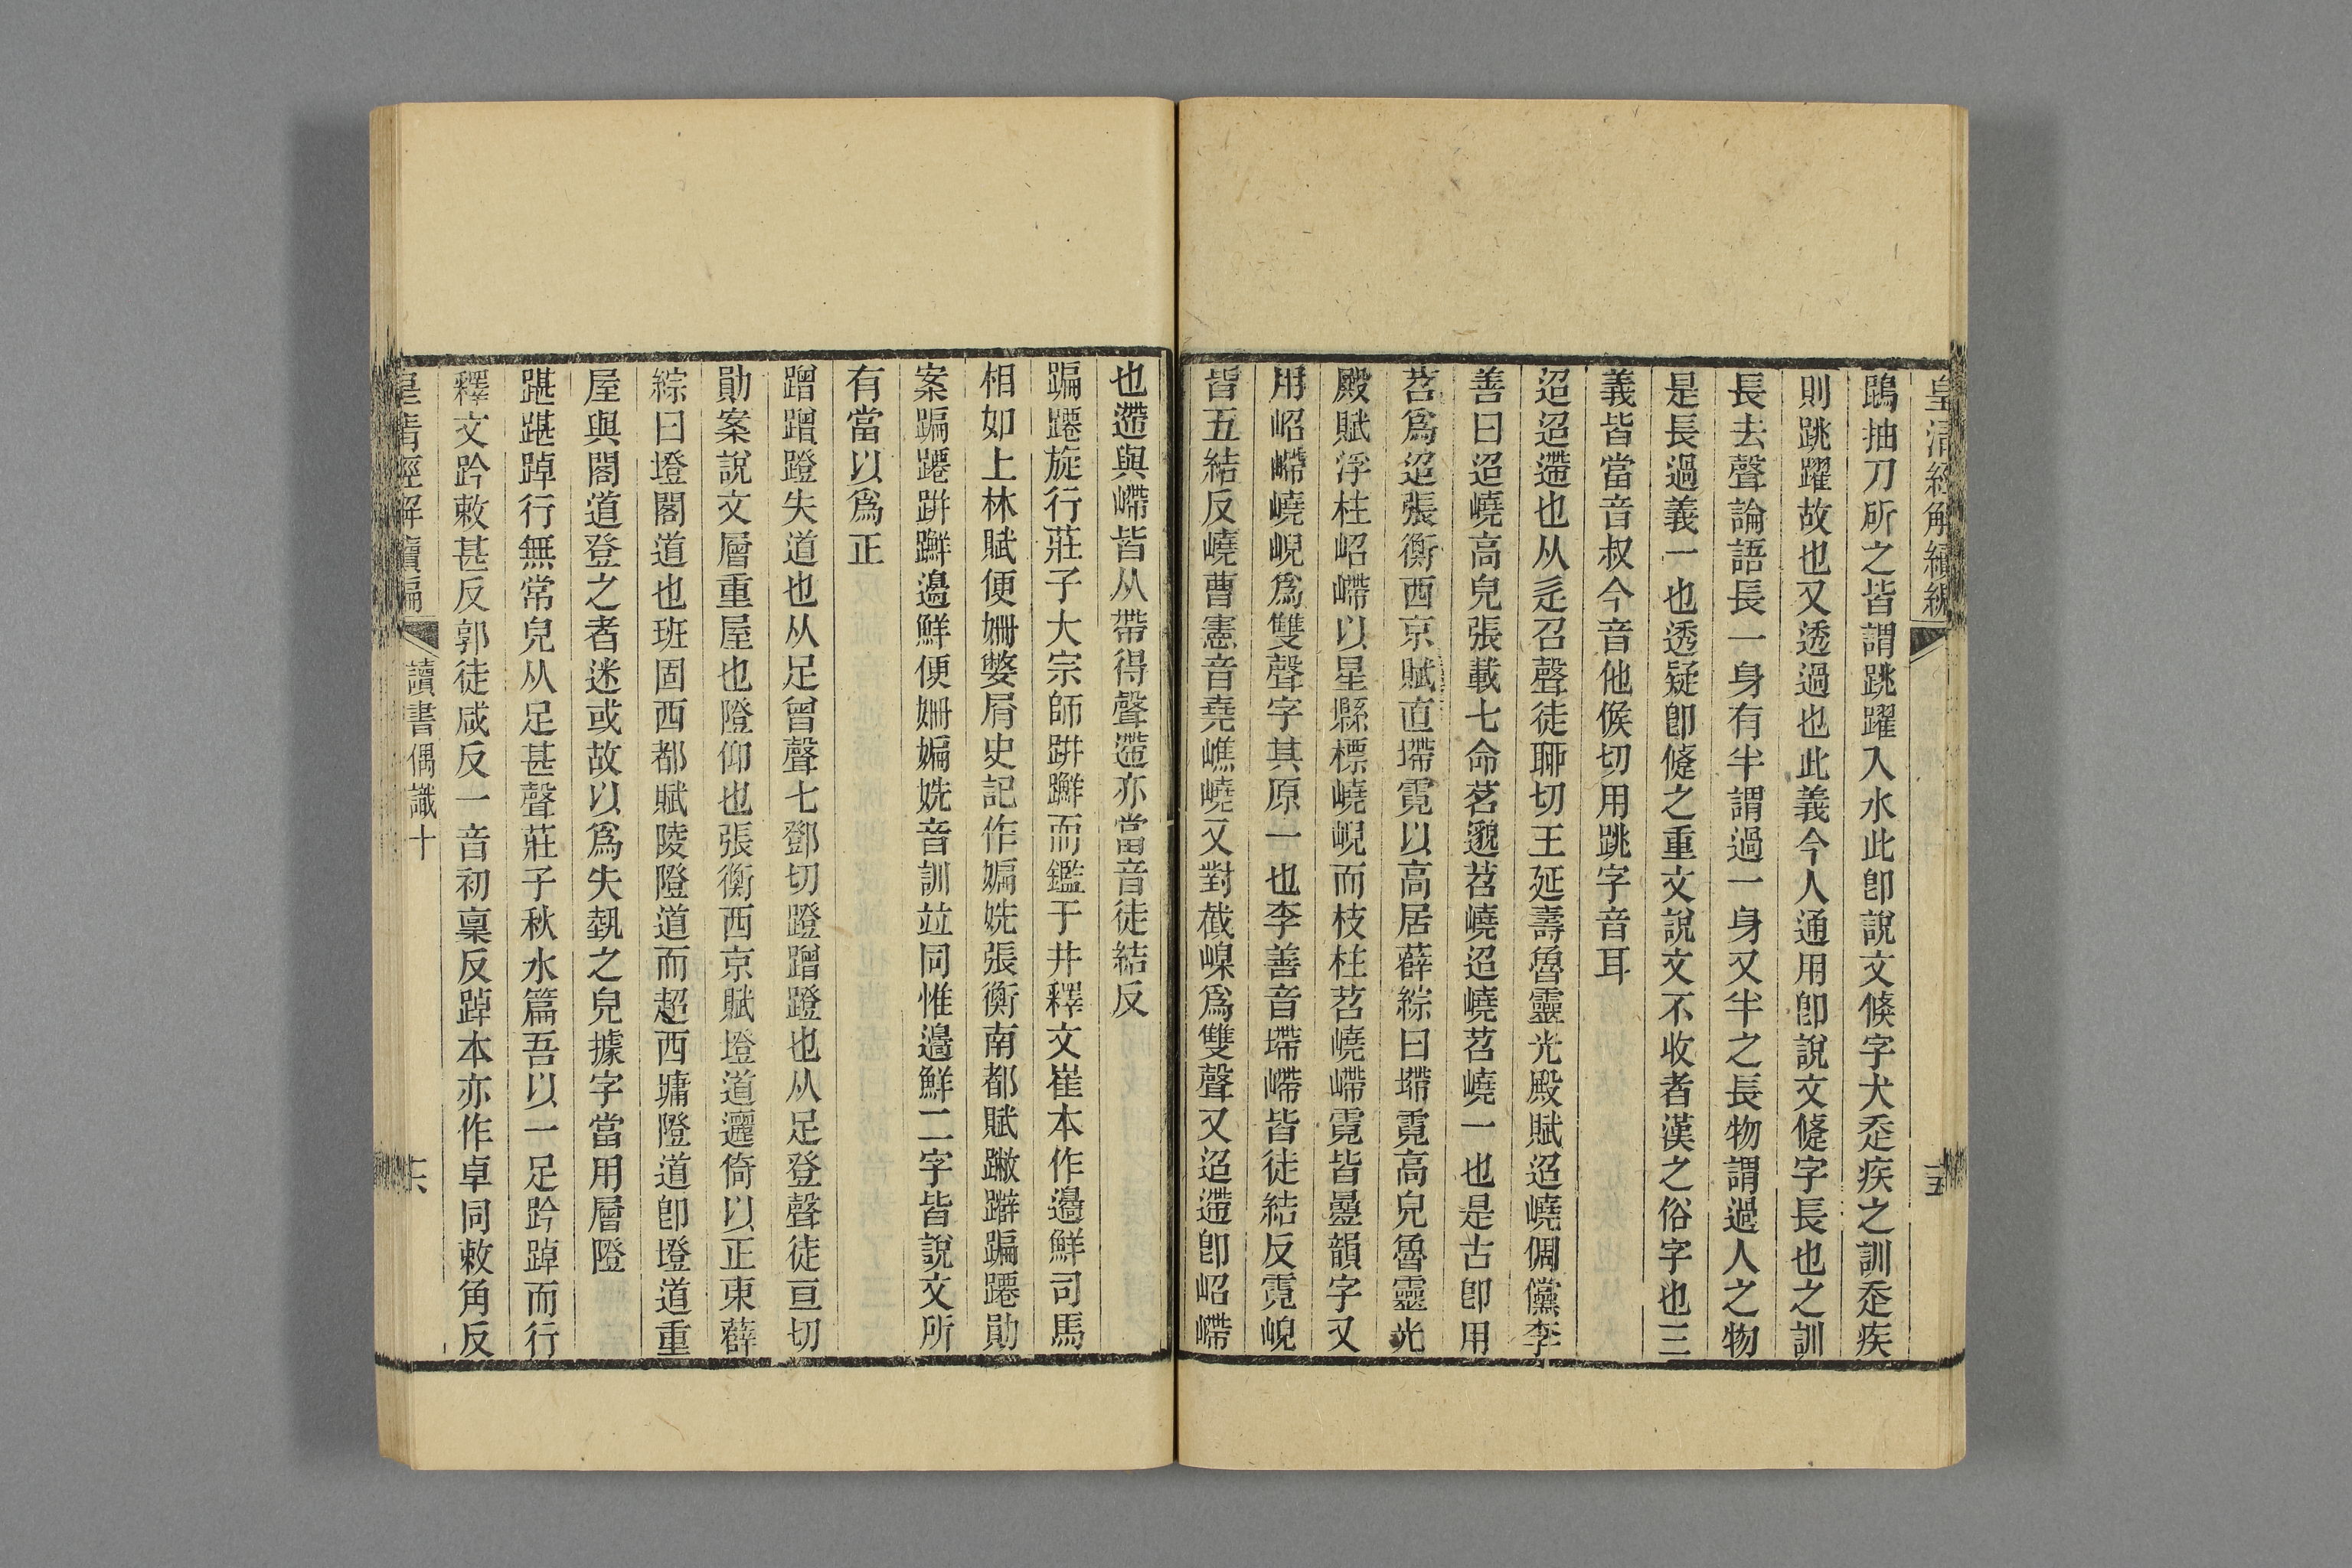 皇清經解續編
十五
鵾抽刀所之皆謂跳躍入水此卽說文倐字犬走疾之訓走疾
則跳躍故也又透過也此義今人通用卽說文𠐊字長也之訓
長去聲論語長一身有半謂過一身又半之長物謂過人之物
是長過義一也透疑卽𠐊之重文說文不收者漢之俗字也三
義皆當音叔今音他候切用跳字音耳
迢迢遰也从辵召聲徒聊切王延壽魯靈光殿賦迢嶢倜儻李
善曰迢嶢高皃張載七命茗邈苕嶢迢嶢苕嶢一也是古卽用
苕爲迢張衡西京賦直墆霓以高居薛綜曰墆霓高皃魯靈光
殿賦浮柱岹嵽以星縣標嶢峴而枝柱苕嶢嵽霓皆疊韻字又
用岹嵽嶢峴爲雙聲字其原一也李善音墆嵽皆徒結反霓峴
皆五結反嶢曹憲音堯嶕嶢又對嶻嵲爲雙聲又迢遰卽岹嵽
也遰與嵽皆从帶得聲遰亦當音徒結反
蹁躚旋行莊子大宗師跰𨇤而鑑于井釋文崔本作邉鮮司馬
相如上林賦便姍嫳屑史記作媥姺張衡南都賦蹴躃蹁躚勛
案蹁躚跰𨇤邉鮮便姍媥姺音訓竝同惟邉鮮二字皆說文所
有當以爲正
蹭蹭蹬失道也从足曾聲七鄧切蹬蹭蹬也从足登聲徒亘切
勛案說文層重屋也隥仰也張衡西京賦墱道邐倚以正東薛
綜曰墱閣道也班固西都賦陵隥道而超西墉隥道卽墱道重
屋與閣道登之者迷或故以爲失埶之皃據字當用層隥
踸踸踔行無常皃从足甚聲莊子秋水篇吾以一足趻踔而行
釋文趻敕甚反郭徒咸反一音初稟反踔本亦作卓同敕角反
皇清經解續編
讀書偶識十
十六